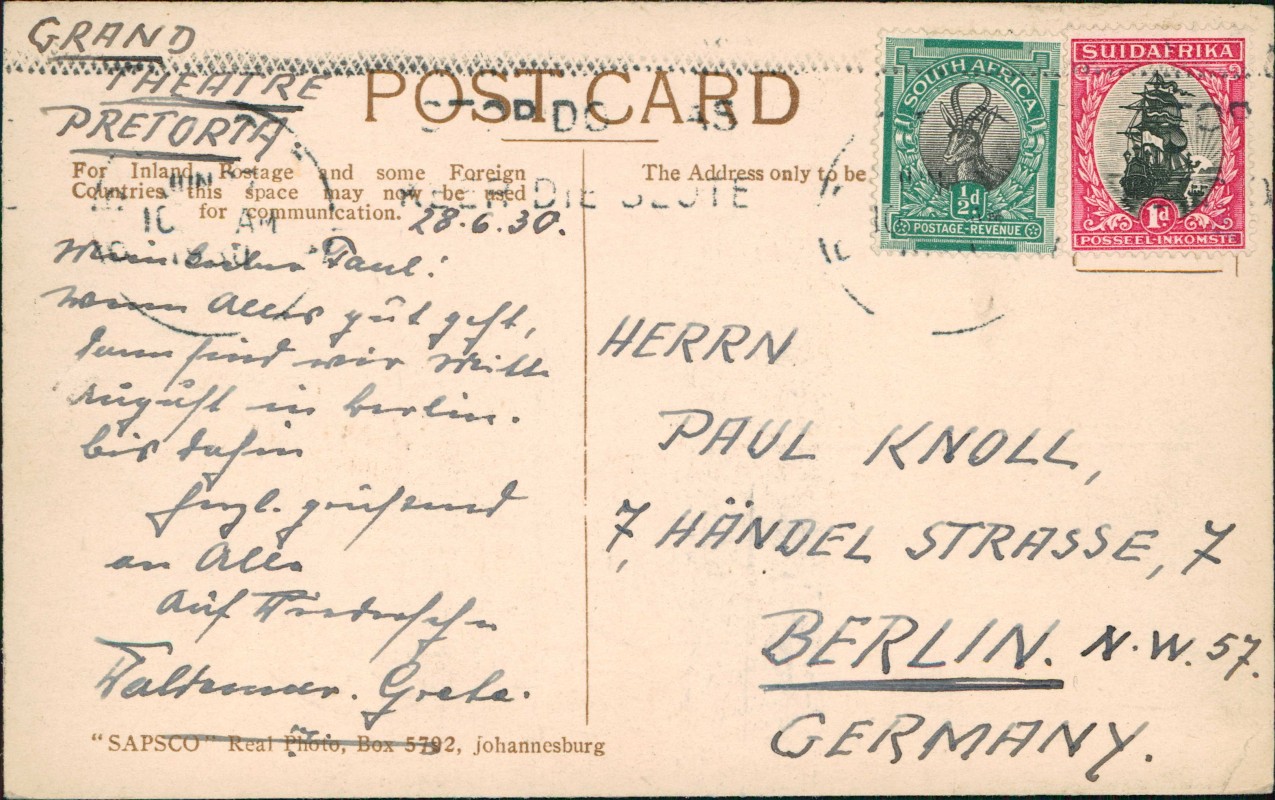 GRAND
THEATRE
PRETORIA
POST CARD
For Inland Postage and some Foreign
Countries this space may now be used
for communication.
28.6.30.
Mein lieber Paul!
Wenn Alles gut geht,
dann sind wir Mitte
August in Berlin.
bis dahin
herzl. grüßend
an Alle
Auf Wiedersehn
Waldemar. Grete.
"SAPSCO" Real Photo, Box 5792, Johannesburg
The Address only to be
SOUTH AFRICA
½d
POSTAGE-REVENUE
SUIDAFRIKA
1d
POSSEEL-INKOMSTE
JUN
10 AM
DIE
HERRN
PAUL KNOLL,
7, HÄNDEL STRASSE, 7
BERLIN. N.W. 57.
GERMANY.